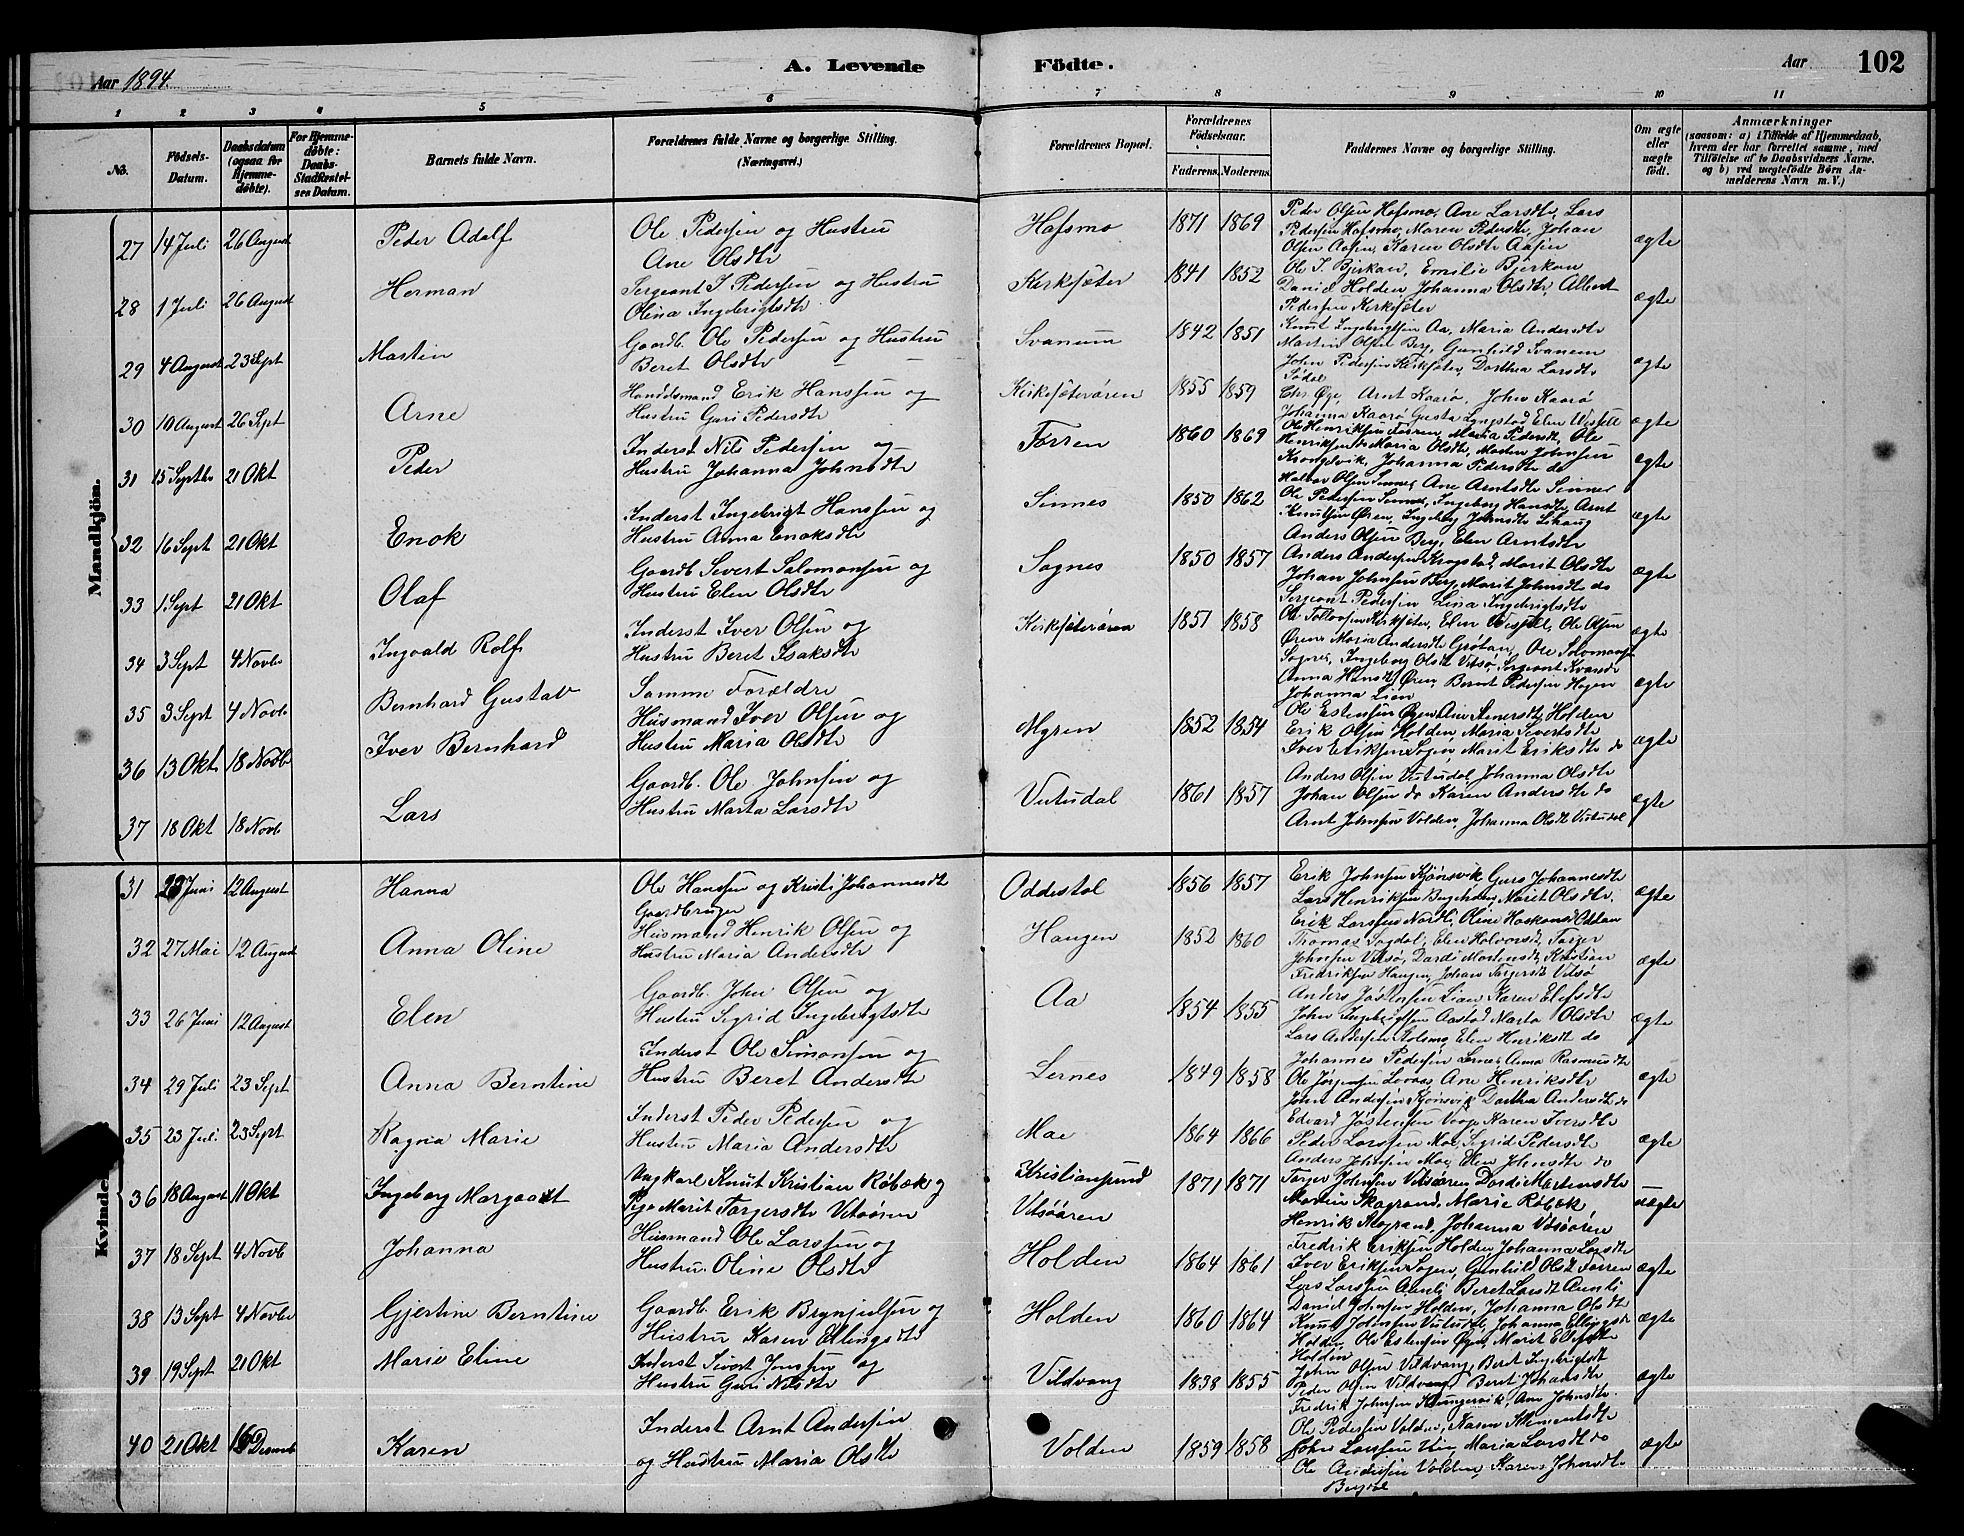 Aar 1894.
A. Levende Födte.
Aar
102
1 2 3 4 5 6 7 8 9 10 11
No.
Födsels-Datum.
Daabsdatum (ogsaa for Hjemme-döbte).
For Hjemme-döbte: Daabs-Stadfæstel-ses Datum.
Barnets fulde Navn.
Forældrenes fulde Navne og borgerlige Stilling. (Næringsvei.)
Forældrenes Bopæl.
Forældrenes Födselsaar.
Faderens. Moderens.
Faddernes Navne og borgerlige Stilling.
Om ægte eller uægte født.
Anmærkninger
(saasom: a) i Tilfælde af Hjemmedaab, hvem der har forrettet samme, med Tilföielse af to Daabsvidners Navne. og b) ved uægtefödte Börn An-melderens Navn m.V.)
Mandkjön.
27 14 Juli 26 August Peder Adolf Ole Pedersen og Hustru Ane Olsdtr Hafsmo 1871 1869 Peder Olsen Hafsmo, Ane Larsdtr, Lars
Pedersen Hafsmo, Maren Pedersdtr, Johan
Olsen Aasen, Karen Olsdtr Aasen ægte
28 1 Juli 26 August Herman Sergeant I Pedersen og Hustru Olina Ingebrigtsdtr Kirksæter 1841 1852 Ole I. Bjerkan, Emilie Bjerkan
Daniel Holden, Johanna Olsdtr, Albert
Pedersen Kirksæter ægte
29 4 August 23 Sept Martin Gaardb. Ole Pedersen og Hustru Beret Olsdtr Svanem 1842 1851 Knut Ingebrigtsen Aa, Maria Andersdtr
Martin Olsen Berg, Gunhild Svanem
John Pedersen Kirksæter, Dorthea Larsdtr
Sødal ægte
30 10 August 26 Sept Arne Handelsmand Erik Hanssen og Hustru Guri Pedersdtr Kirksæterøren 1855 1859 Chr. Øye, Arnt Kaarø, John Kaarø
Johanna Kaarø Gusta Lyngstad Elen Wessel ægte
31 15 Septbr 21 Okt Peder Inderst Nils Pedersen og Hustru Johanna Johnsdtr Torren 1860 1869 Ole Henriksen Torren, Maria Pedersdt, Ole
Henriksen do Maria Olsdtr, Morten Johnsen
Krongelvik, Johanna Pedersdtr do ægte
32 16 Sept 21 Okt Enok Inderst Ingebrigt Hanssen og Hustru Anna Enoksdtr Sinnes 1850 1862 Halvor Olsen Sinnes, Ane Arntsdtr Sinnes
Ole Pedersen Sinnes, Ingeborg Hansdtr, Arnt
Knutsen Øren, Ingebrg Johnsdtr Lihaug ægte
33 1 Sept 21 Okt Olaf Gaardb. Sivert Salomonsen og Hustru Elen Olsdtr Sognes 1850 1857 Anders Olsen Berg, Elen Arntsdtr
Anders Andersen Krogstad, Marit Olsdtr
Johan Johnsen Berg, Marit Johnsdtr do ægte
34 3 Sept 4 Novbr Ingvald Rolf Inderst Iver Olsen og Hustru Beret Isaksdtr Kirksæterøren 1851 1858 Sergeant Pedersen Lina Ingebrigtsdtr
Ole Kirksæter, Elen Wessel, Ole Olsen
Øren, Maria Andersdtr Grøtan ægte
35 3 Sept 4 Novb Bernhard Gustav Samme Forældre Ole Salomonsen
Sognes, Ingeborg Olsdt Vitsø, Sergeant Kvande
Anna Hansdt Øren, Bernt Pedersen Hagen
Johanna Lian ægte
36 13 Okt 18 Novbr Iver Bernhard Husmand Iver Olsen og Hustru Maria Olsdtr Myren 1852 1854 Ole Estensen Øyen Holden
Erik Olsen Holden, Maria Sivertsdtr
Iver Eriksen Sogn, Marit Eriksdtr do ægte
37 18 Okt 18 Novb Lars Gaardb. Ole Johnsen og Hustru Marta Larsdtr Vutudal 1861 1857 Anders Olsen Vutudal, Johanna Olsdtr
Johan Olsen do Karen Andersdtr do
Arnt Johnsen Volden, Johanna Olsdt Vutudal ægte
Kvindekj
31 23 Juni 12 August Hanna Ole Hanssen og Kristi Johannesdt Gaardbruger Oddestol 1856 1857 Erik Johnsen Kjønsvik Guro Johannesdtr
Lars Henriksen Marit Olsdtr,
Erik Larssen Oline Haakonsd ægte
32 27 Mai 12 August Anna Oline Husmand Henrik Olsen og Hustru Maria Andersdtr Haugen 1852 1860 Thomas Sogdal, Elen Halvorsdt, Torger
Johnsen Vitsø, Dordi Mortensdt, Kristian
Fredriksen Haugen, Johan Torgersdt Vitsø ægte
33 26 Juni 12 August Elen Gaardb. John Olsen og Hustru Sigrid Ingebrigtsdtr Aa 1854 1855 Anders Jostensen Lian, Karen Elefsdtr
John Ingebrigtsen Aastad Marta Olsdtr
Lars Andersen Rolsmo, Elen Henriksdt do ægte
34 29 Juli 23 Sept Anna Berntine Inderst Ole Simonsen og Hustru Beret Andersdtr Lernes 1849 1858 Johannes Pedersen Lernes, Anna Rasmusdtr
Ole Jørgensen Lernes, Ane Henriksdtr
John Andersen Kjønsvik, Dorthea Andersdtr do ægte
35 23 Juli 23 Sept Ragna Marie Inderst Peder Pedersen og Hustru Maria Andersdtr Moe 1864 1866 Edvard Jostensen Karen Iversdtr
Peder Larssen Moe, Sigrid Pedersdtr
Anders Johnsen Moe, Elen Johnsdtr do ægte
36 18 August 11 Okt Ingeborg Margaret Ungkarl Knut Kristian Røbæk og Pige Marit Torgersdtr Vitsøøren Kristiansund Vitsøøren 1871 1871 Torger Johnsen Vitsøøren Dordi Mortensdtr
Martin Skogrand, Marie Røbæk,
Henrik Skogrand, Johanna Vitsøøren uægte
37 18 Sept 4 Novb Johanna Husmand Ole Larssen og Hustru Oline Olsdtr Holden 1864 1861 Fredrik Eriksen Holden, Johanna Larsdtr
Iver Eriksen Sogn, Gunhild Olsdt Torren
Lars Larssen Aunli, Beret Larsdt Aunli ægte
38 13 Sept 4 Novbr Gjertine Berntine Gaardb. Erik Brynjulsen og Hustru Karen Ellingsdtr Holden 1860 1864 Daniel Johnsen Holden, Johanna Olsdtr
Knut Johnsen Vutudal, Johanna Ellingsdtr
Holden, Ole Estensen Øyen, Marit
Holden ægte
39 19 Sept 21 Okt Marie Eline Inderst Sivert Jonssen og Hustru Guri Nilsdtr Vildvang 1838 1855 John Olsen Vildvang, Beret Ingebrigtsdt
Peder Olsen Vildvang, Beret Johansdtr
Fredrik Johnsen Haugervik, Ane Johnsdtr ægte
40 21 Okt 16 Desemb Karen Inderst Arnt Andersen og Hustru Maria Olsdtr Volden 1859 1858 Ole Pedersen Volden, Karen Klementsdtr
John Larssen Maria Larsdt do
Ole Andersen Volden, Karen Johnsdtr ægte